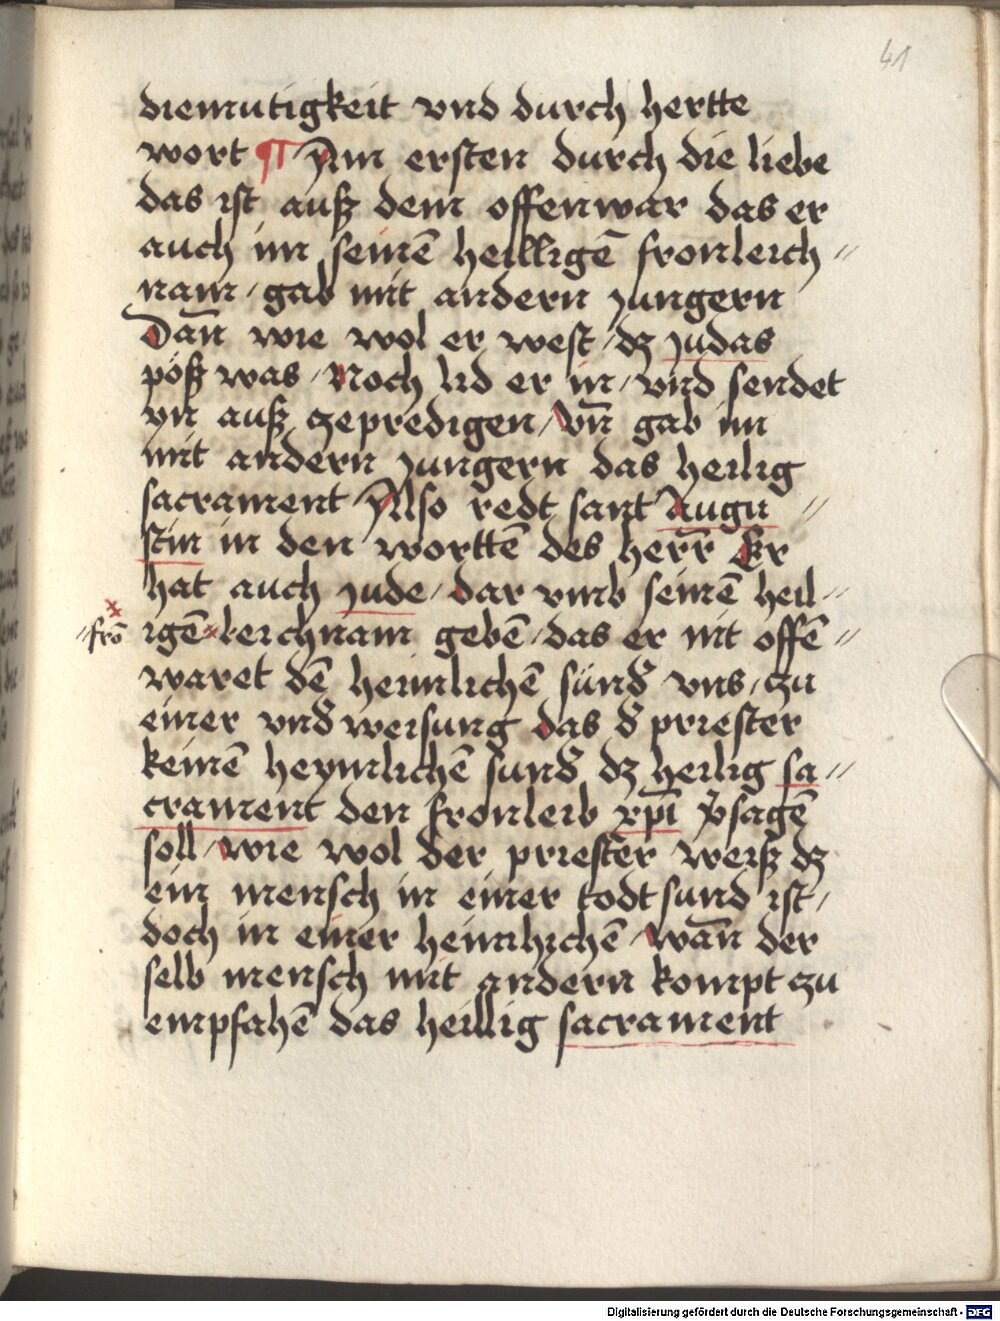 41
diemutigkeit vnd durch hertte
wort ¶ Am ersten durch die liebe
das ist auß dem offenwar das er
auch im seinē heilligē fronleich〃
nam / gab mit andern jungern
Dan̄ wie wol er west / dz judas
pöß was / Noch lid er in / vnd sendet
yn auß zepredigen / Vn̄ gab im
mit andern jungern das heilig
sacrament Also redt sant Augu〃
stin in den worttē des herr̄ Er
hat auch jude / dar vmb seinē heil〃
〃frō igē leichnam geben̄ / das er nit offē〃
waret dē heimlichē sünd̄ vns / zu
einer vnd̄ weisung das d̄ priester
keinē heymlichē sund̄ dz heilig sa〃
crament den fronleib xp̄i v̄sagē
soll / wie wol der priester weiß dz
ein mensch in einer todt sund ist /
doch in einer heimlichē / wan̄ der
selb mensch mit andern kompt zu
empfahē das heillig sacrament
Digitalisierung gefördert durch die Deutsche Forschungsgemeinschaft - DFG